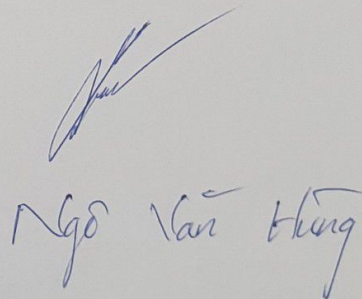 Ngô Văn Hùng